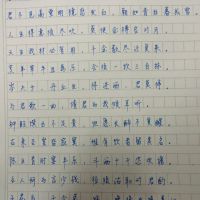 君不见高堂明镜悲白发，朝如青丝暮成雪。
人生得意须尽欢，莫使金樽空对月。
天生我材必有用，千金散尽还复来。
烹羊宰牛且为乐，会须一饮三百杯。
岑夫子，丹丘生，将进酒，君莫停。
与君歌一曲，请君为我倾耳听。
钟鼓馔玉不足贵，但愿长醉不愿醒。
古来圣贤皆寂寞，惟有饮者留其名。
陈王昔时宴平乐，斗酒十千恣欢谑。
主人何为言少钱，径须沽取对君酌。